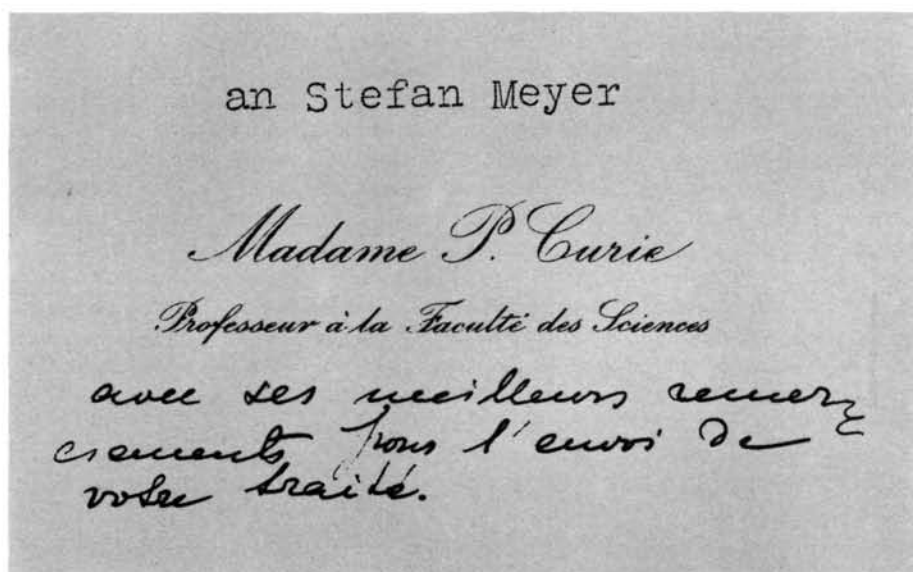 an Stefan Meyer
Madame P. Curie
Professeur à la Faculté des Sciences
avec ses meilleurs remer-
ciements pour l'envoi de
votre traité.